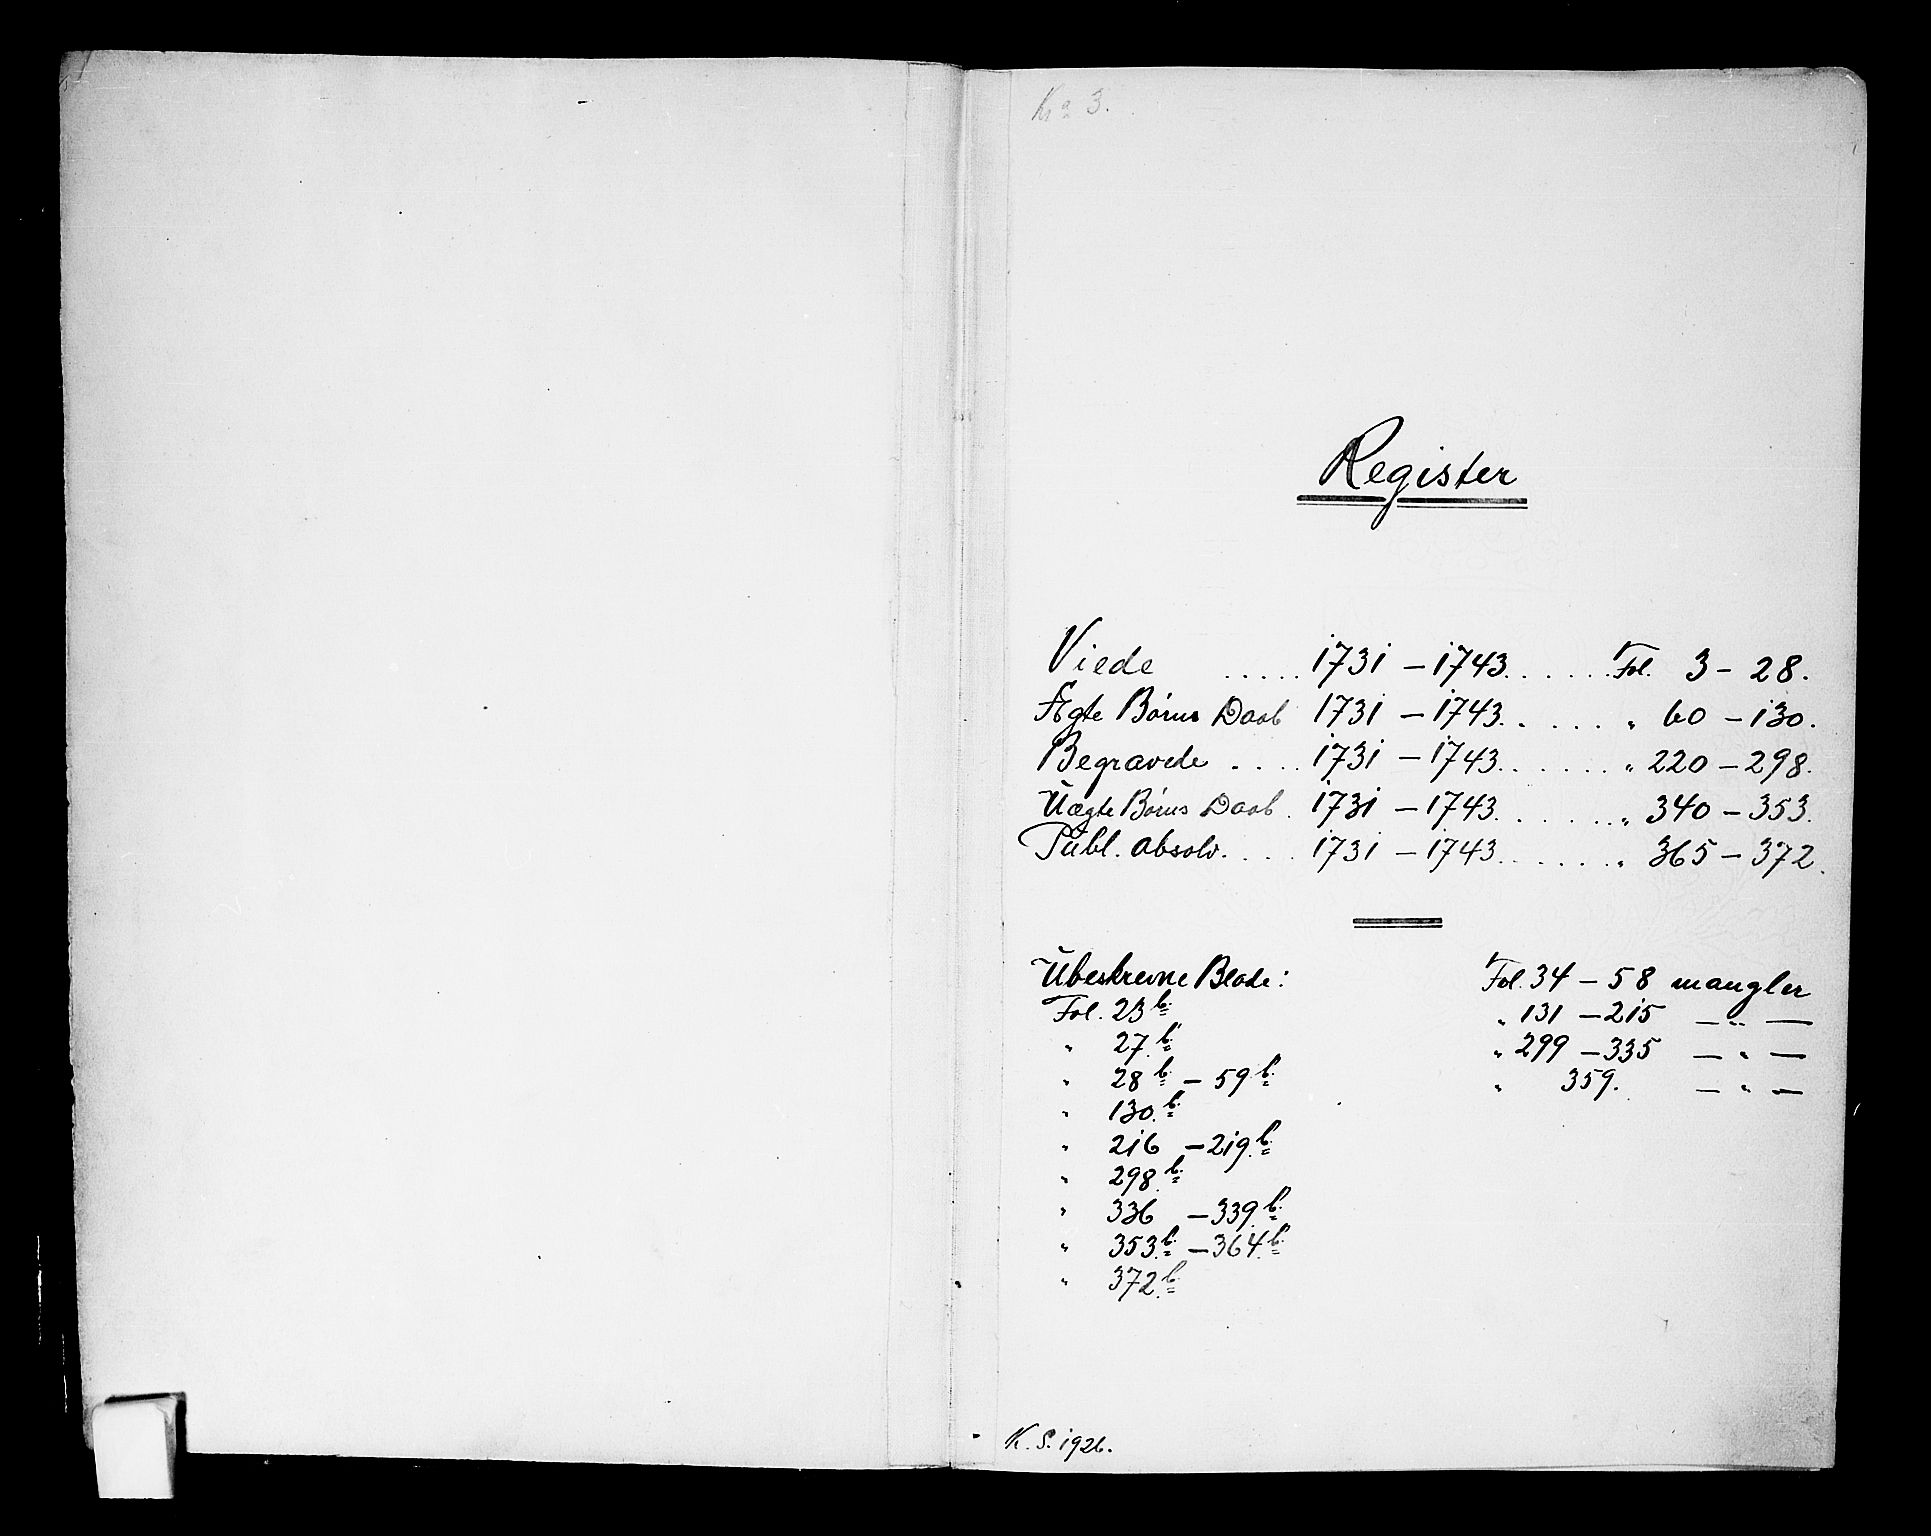 No 3.
Register
Viede ..... 1731 – 1743 ...... Fol. 3 – 28.
Ægte Børns Daab 1731 – 1743 ..... " 60 – 130.
Begravede .... 1731 – 1743 ...... " 220 – 298.
Uægte Børns Daab . 1731 – 1743 ...... " 340 – 353.
Publ. absolv. ... 1731 – 1743 ...... " 365 – 372.
Ubeskrevne Blade:
Fol. 23 b.
" 27. b.
" 28 b. – 59 b.
" 130. b.
" 216 – 219. b.
" 298. b.
" 336 – 339. b.
" 353. b. – 364. b.
" 372. b.
Fol. 34 – 58 mangler
" 131 – 215 — " —
" 299 – 335 — " —
" 359. — " —
K. S. 1926.